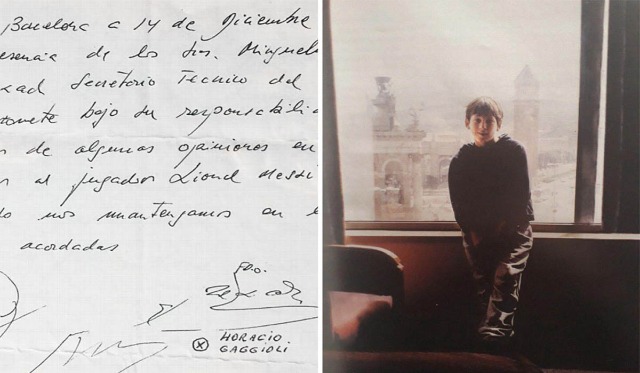 Barcelona a 14 de Diciembre
esencia de los Sres. Minguel
xad Secretorio Tecnico del
omete bajo su responsabili
de algunas opiniones en
al jugador Lionel Messi
nos mantengamos en
acordadas
HORACIO
GAGGIOLI